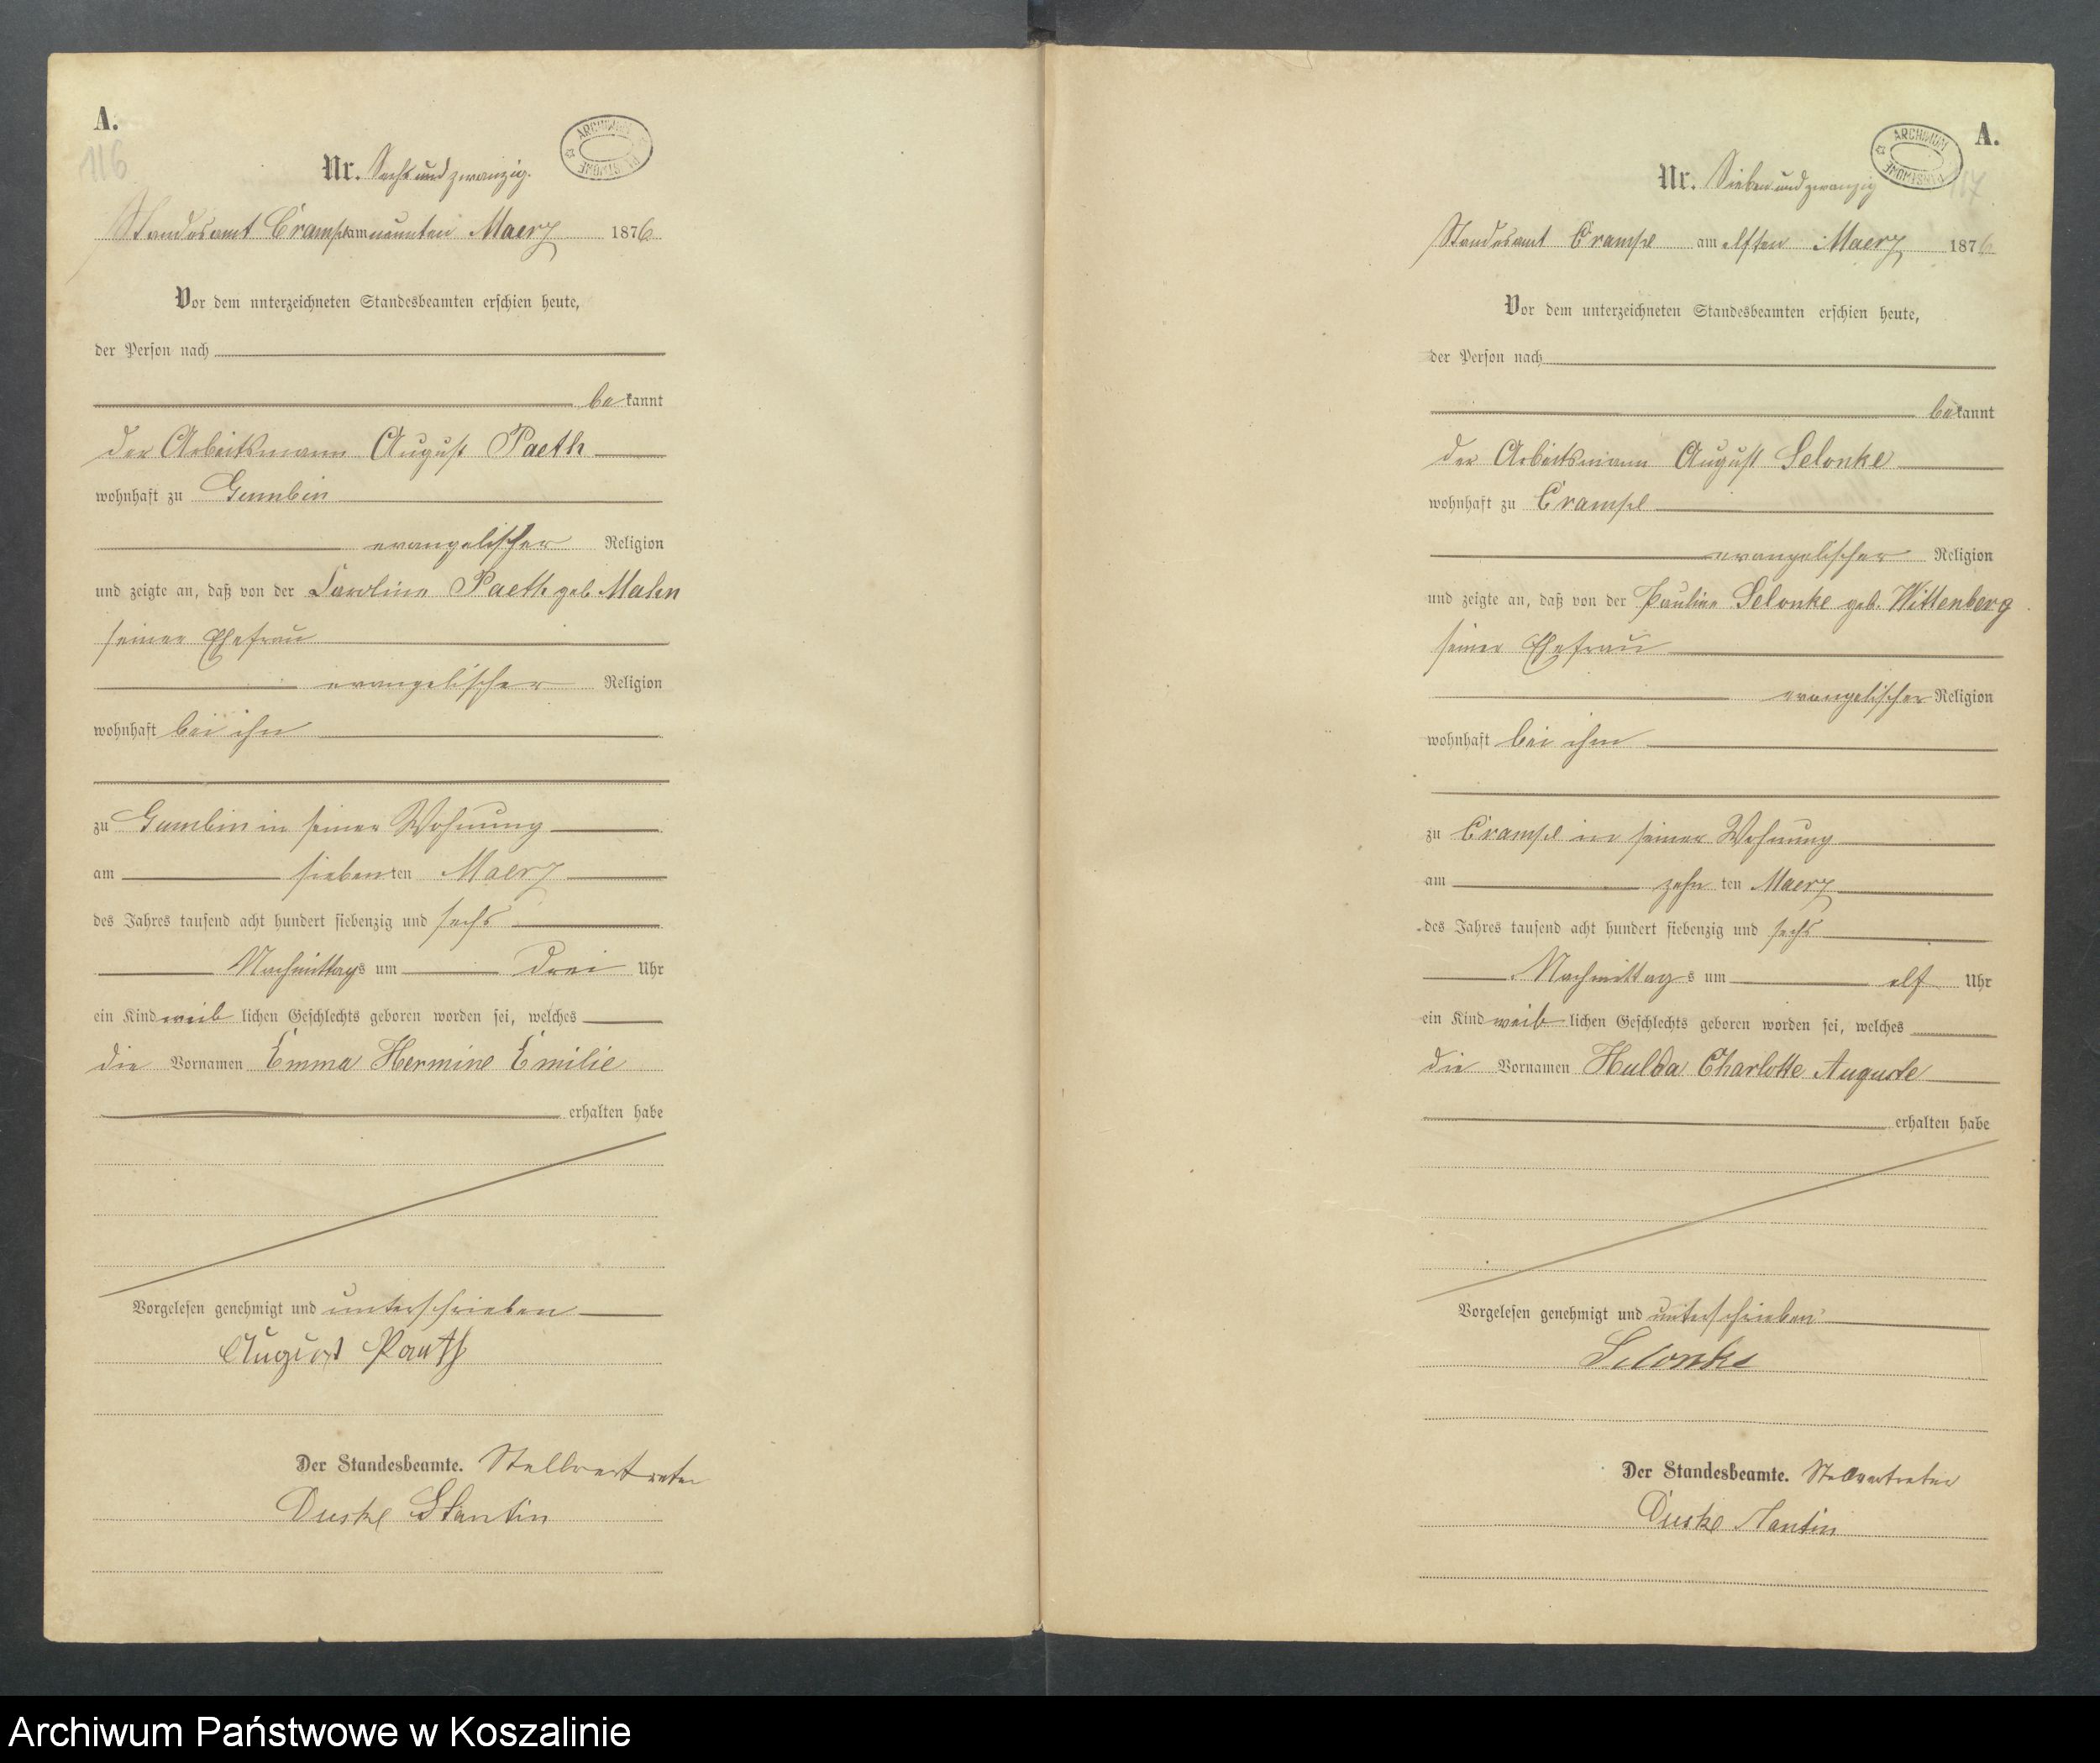 A.
116
ARCHIWUM PAŃSTWOWE
Nr. Sechs und zwanzig.
Standesamt Crampe am neunten Maerz 1876
Vor dem unterzeichneten Standesbeamten erschien heute,
der Person nach
bekannt
der Arbeitsmann August Paeth
wohnhaft zu Gumbin
evangelischer Religion
und zeigte an, daß von der Caroline Paeth geb. Mahn
seiner Ehefrau
evangelischer Religion
wohnhaft bei ihm
zu Gumbin in seiner Wohnung
am siebenten Maerz
des Jahres tausend acht hundert siebenzig und sechs
Nachmittags um drei Uhr
ein Kind weiblichen Geschlechts geboren worden sei, welches
die Vornamen Emma Hermine Emilie
erhalten habe
Vorgelesen genehmigt und unterschrieben
August Paeth
Der Standesbeamte. Stellvertreter
Duske
A.
117
ARCHIWUM PAŃSTWOWE
Nr. Sieben und zwanzig
Standesamt Crampe am elften Maerz 1876
Vor dem unterzeichneten Standesbeamten erschien heute,
der Person nach
bekannt
der Arbeitsmann August Selonke
wohnhaft zu Crampe
evangelischer Religion
und zeigte an, daß von der Pauline Selonke geb. Wittenberg
seiner Ehefrau
evangelischer Religion
wohnhaft bei ihm
zu Crampe in seiner Wohnung
am zehnten Maerz
des Jahres tausend acht hundert siebenzig und sechs
Nachmittags um elf Uhr
ein Kind weiblichen Geschlechts geboren worden sei, welches
die Vornamen Hulda Charlotte Auguste
erhalten habe
Vorgelesen genehmigt und unterschrieben
Selonke
Der Standesbeamte. Stellvertreter
Duske
Archiwum Państwowe w Koszalinie